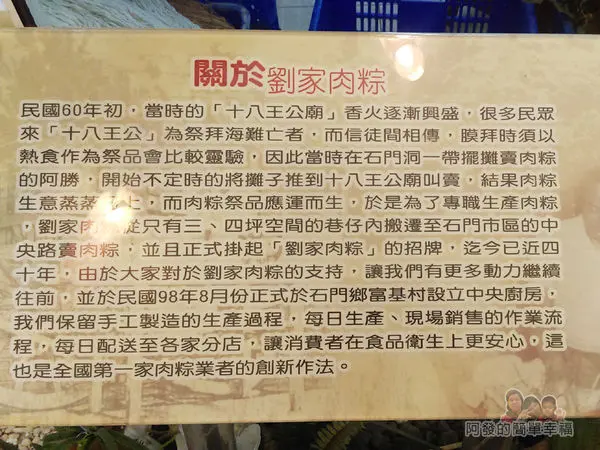 關於劉家肉粽
民國60年初，當時的「十八王公廟」香火逐漸興盛，很多民眾
來「十八王公」為祭拜海難亡者，而信徒間相傳，膜拜時須以
熱食作為祭品會比較靈驗，因此當時在石門洞一帶擺攤賣肉粽
的阿勝，開始不定時的將攤子推到十八王公廟叫賣，結果肉粽
生意蒸蒸上，而肉粽祭品應運而生，於是為了專職生產肉粽
，劉家肉從只有三、四坪空間的巷仔內搬遷至石門市區的中
央路賣肉粽，並且正式掛起「劉家肉粽」的招牌，迄今已近四
十年，由於大家對於劉家肉粽的支持，讓我們有更多動力繼續
往前，並於民國98年8月份正式於石門鄉富基村設立中央廚房，
我們保留手工製造的生產過程，每日生產、現場銷售的作業流
程，每日配送至各家分店，讓消費者在食品衛生上更安心，這
也是全國第一家肉粽業者的創新作法。
阿發的簡單幸福